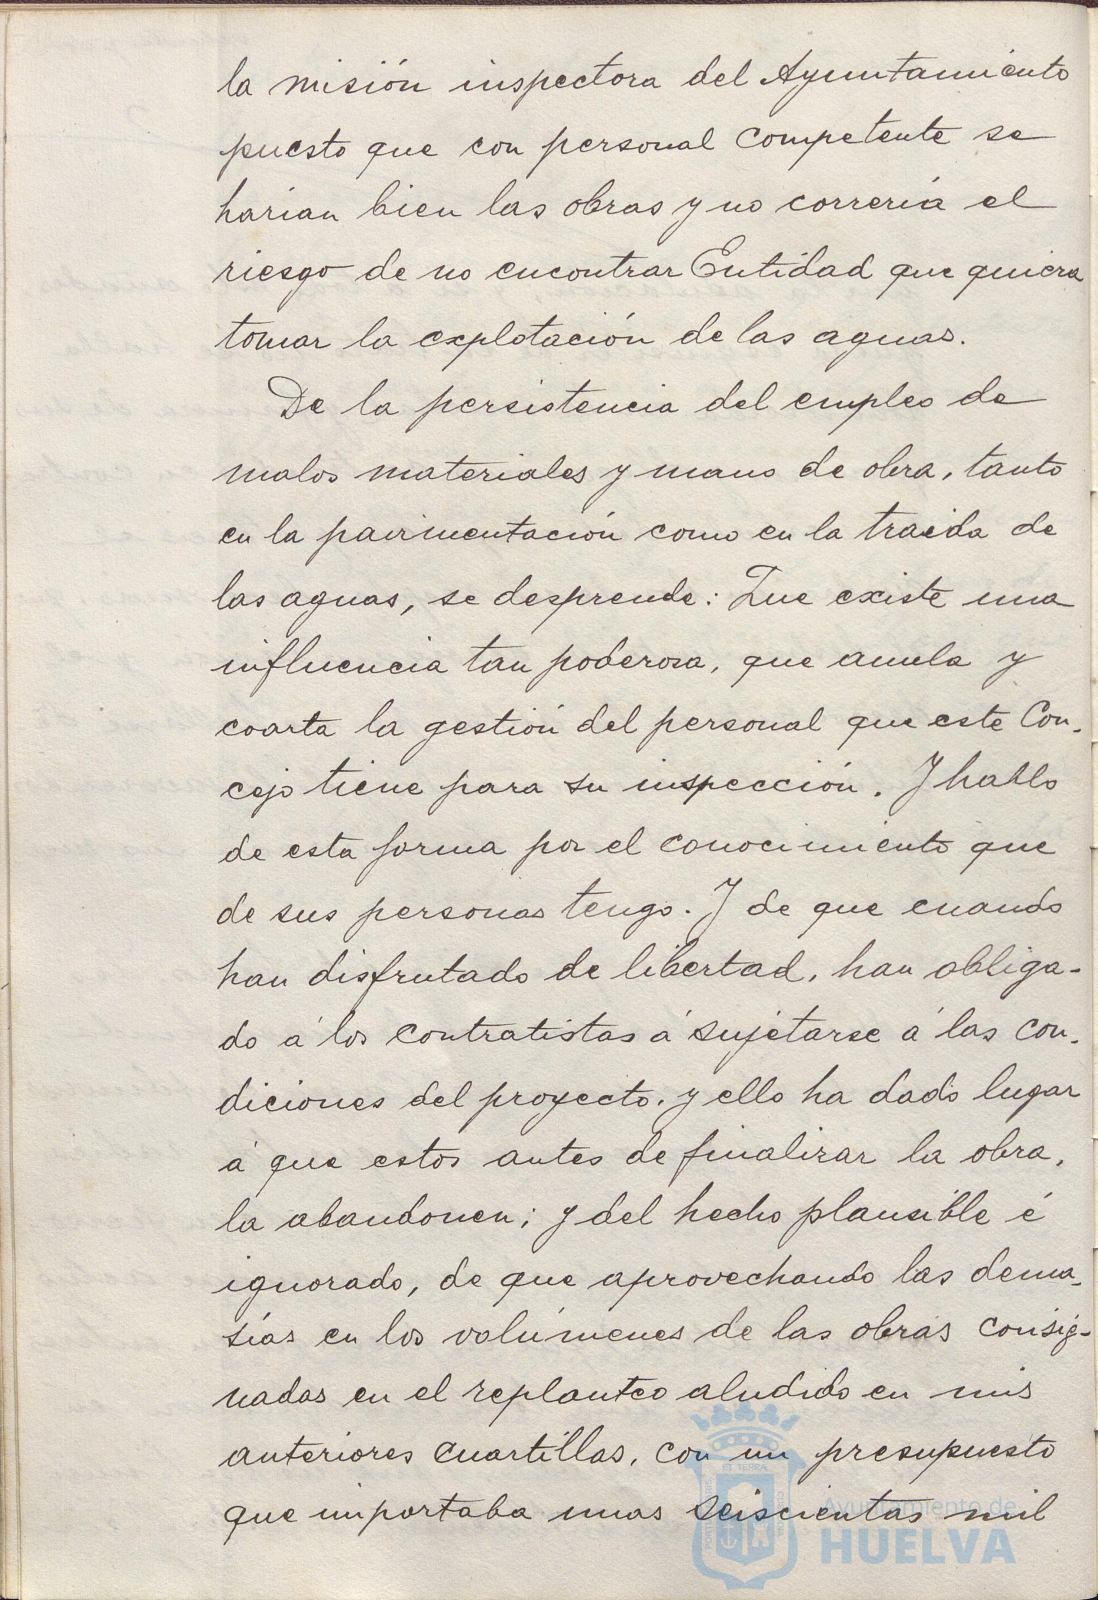 la misión inspectora del Ayuntamiento
puesto que con personal competente se
harian bien las obras y no correría el
riesgo de no encontrar Entidad que quiera
tomar la explotación de las aguas.
De la persistencia del empleo de
malos materiales y mano de obra, tanto
en la pavimentación como en la traida de
las aguas, se desprende: Que existe una
influencia tan poderosa, que anula y
coarta la gestión del personal que este Con-
cejo tiene para su inspección. Y hablo
de esta forma por el conocimiento que
de sus personas tengo. Y de que cuando
han disfrutado de libertad, han obliga-
do á los contratistas á sujetarse á las con-
diciones del proyecto, y ello ha dado lugar
á que estos antes de finalizar la obra,
la abandonen; y del hecho plausible é
ignorado, de que aprovechando las dema-
sías en los volúmenes de las obras consig-
nadas en el replanteo aludido en mis
anteriores cuartillas, con un presupuesto
que importaba unas seiscientas mil
Ayuntamiento de
HUELVA